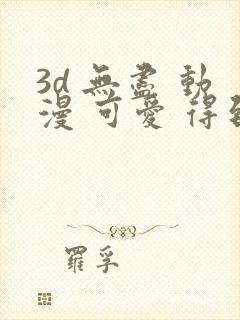 3d 無盡 動
漫 可愛 得
羅孚